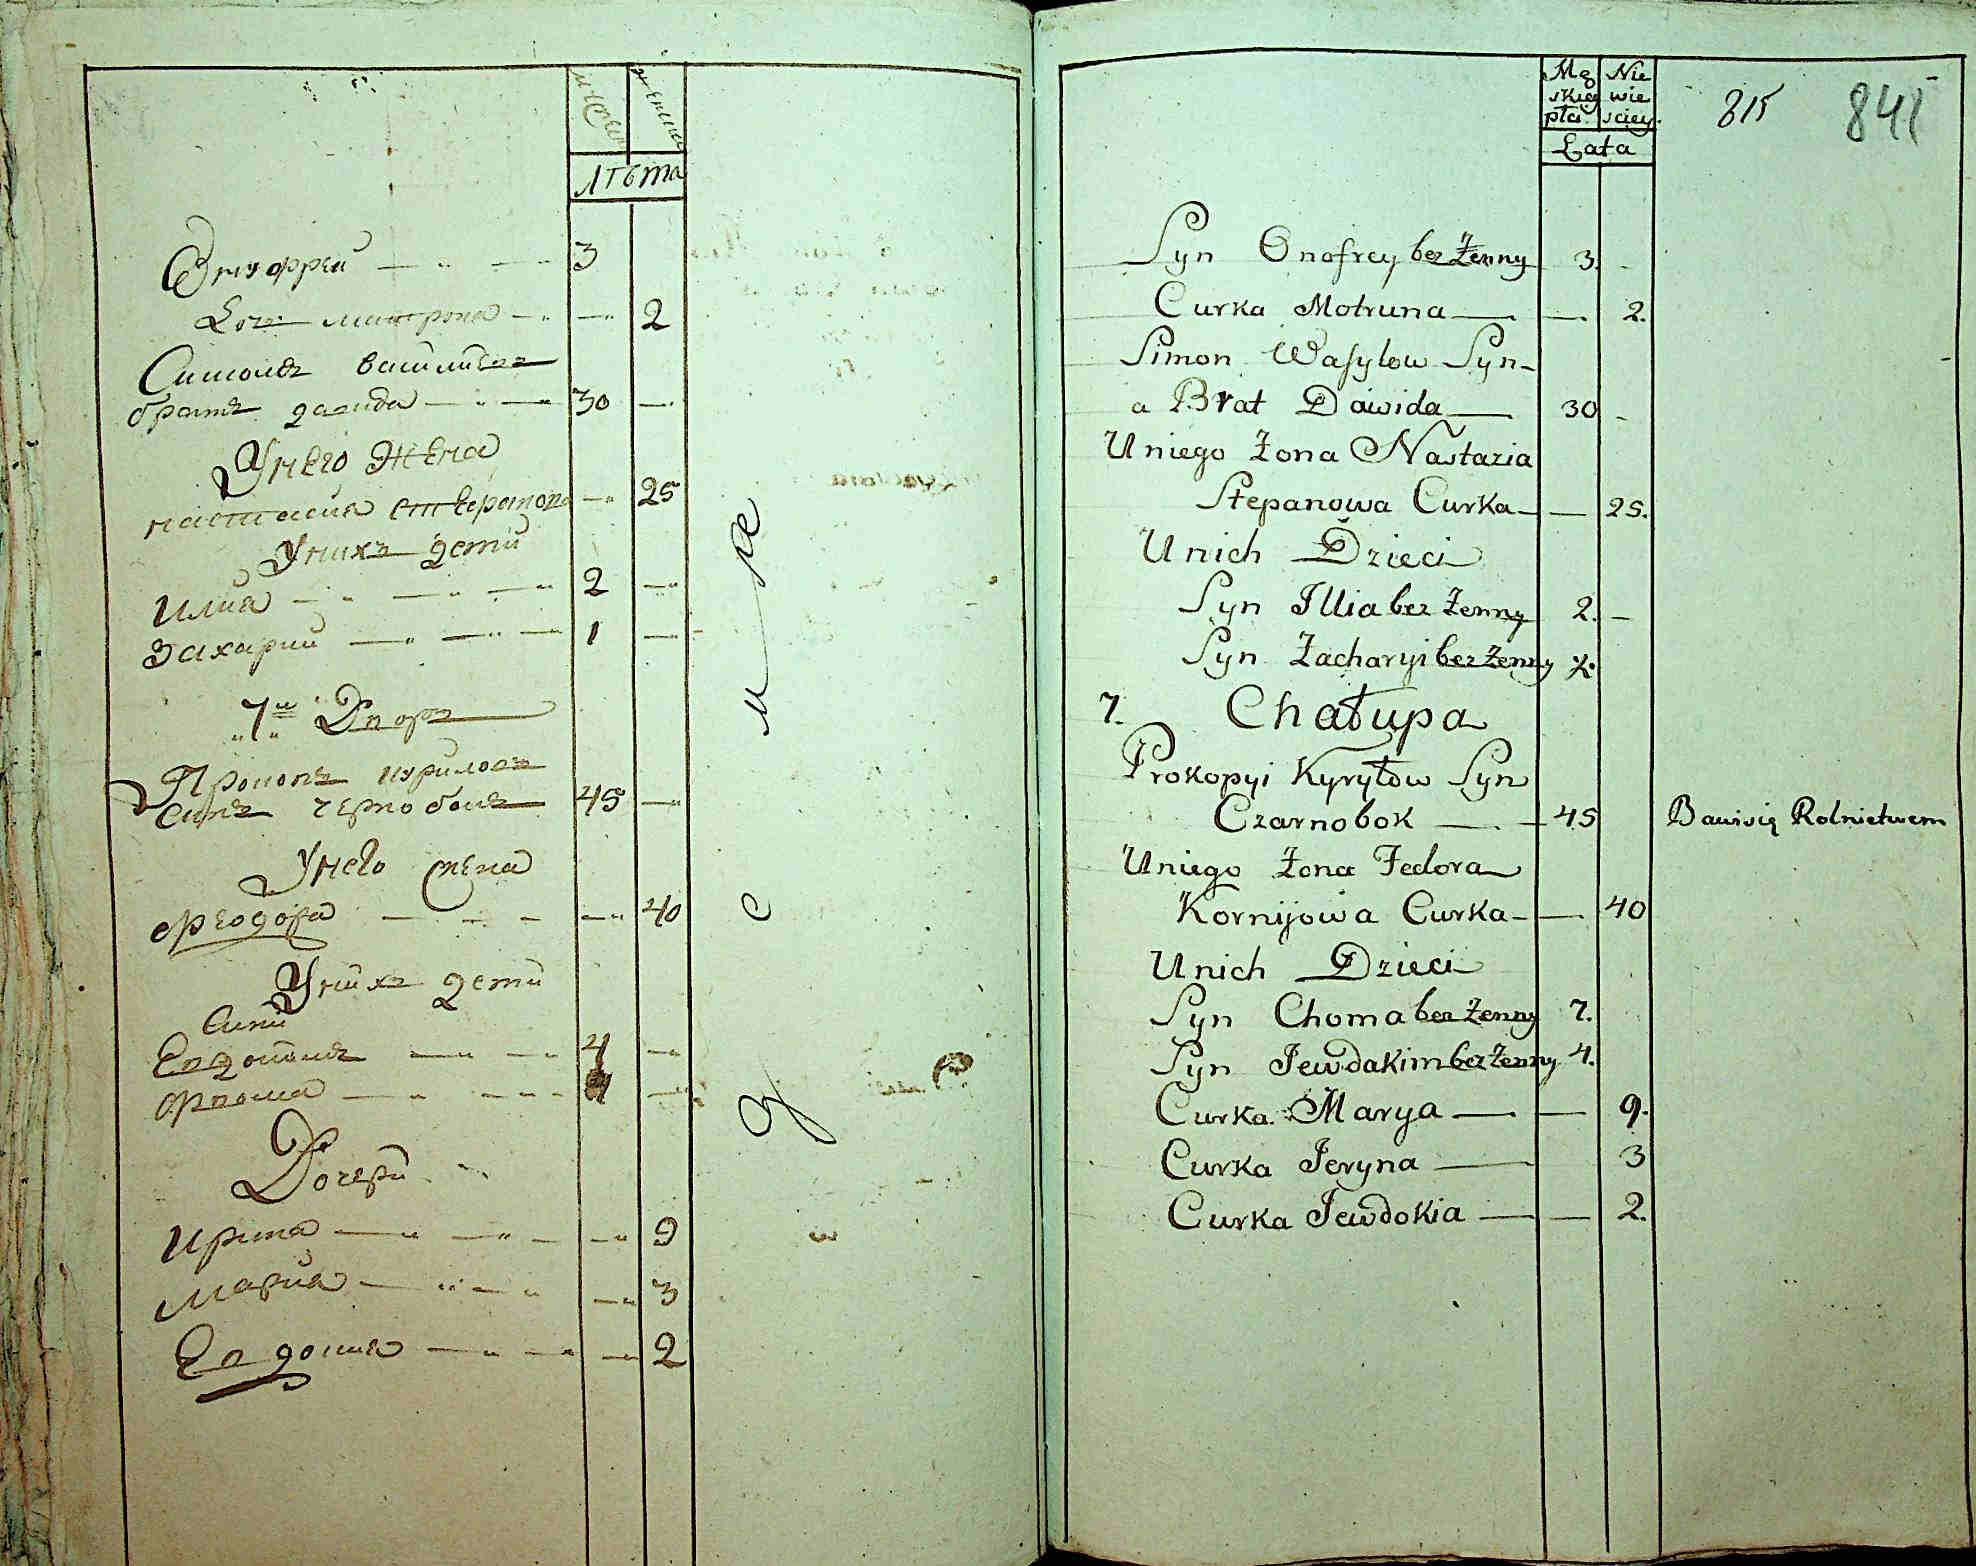 лѣта
Энуфрей 3
Дочь матрона 2
Симонъ василиевъ
братъ давида 30
Унего Жена
настасия 25
Унихъ дети
илия 2
захарий 1
7й Дворъ
Прокопъ кириловъ
синъ чернобокъ 45
Унего жена
феодора 40
Унихъ дети
сини
Евдокимъ 4
фрома
Дочери
ирина 9
мария 3
Евдокия 2
Mę Nie
skiey wie
płci sciey.
815 841
Lata
Syn Onofrey bez Żenny 3.
Curka Motruna 2.
Simon Wasylow Syn
a Brat Dawida 30
Uniego Żona Nastazia
Stepanowa Curka 25.
Unich Dzieci
Syn Illia bez Żenny 2.
Syn Zacharyi bez Żenny
7. Chałupa
Prokopyi Kyryłow Syn
Czarnobok 45 Bawi się Rolnictwem
Uniego Żona Fedora
Kornijowa Curka 40
Unich Dzieci
Syn Choma bez Żenny 7.
Syn Jewdakim bez Żenny 4.
Curka Marya 9.
Curka Jeryna 3
Curka Jewdokia 2.